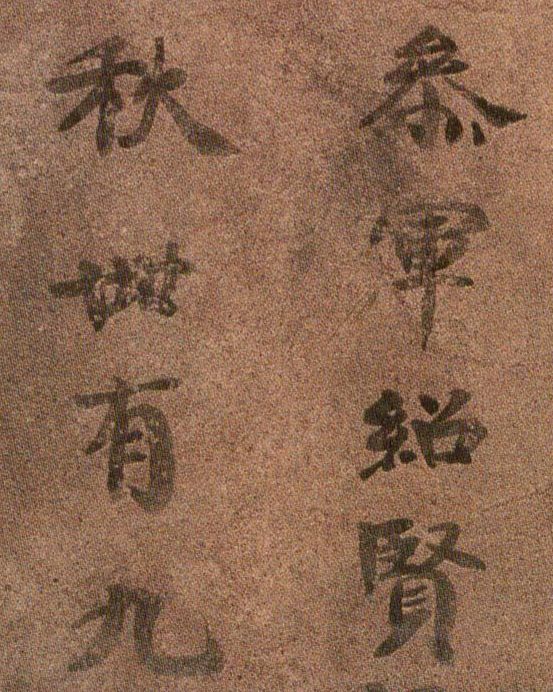 叅軍紹賢
秋卌有九